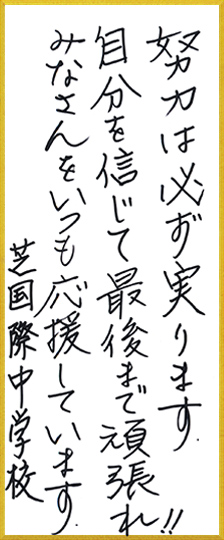 努力は必ず実ります.
自分を信じて最後まで頑張れ!!
みなさんをいつも応援しています.
芝国際中学校